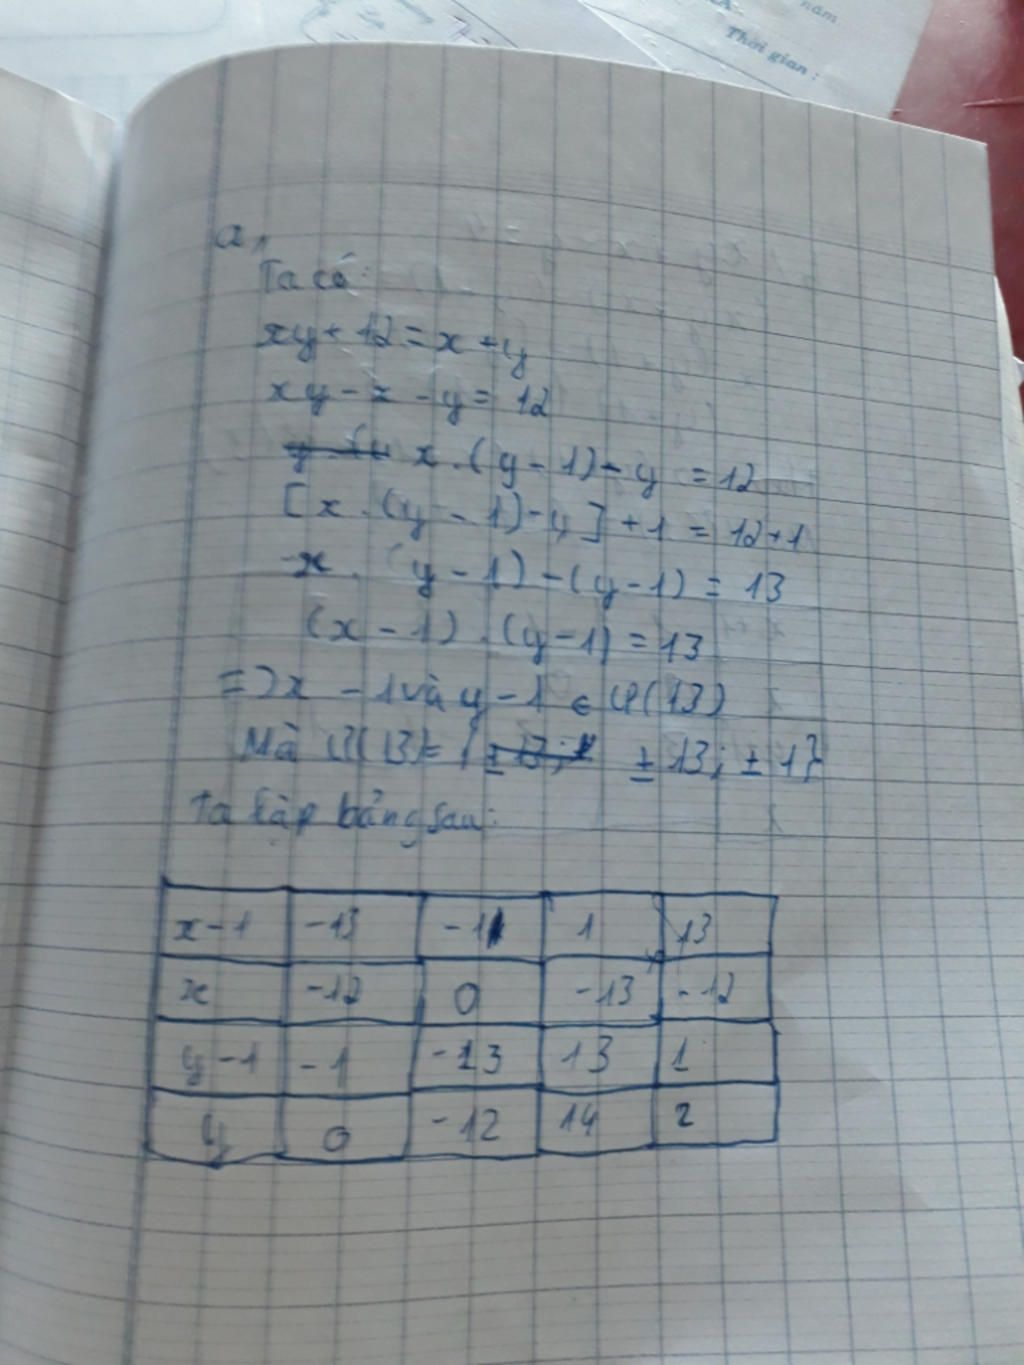 năm
Thời gian :
a,
Ta có:
xy + 12 = x + y
xy - x - y = 12
x . (y - 1) - y = 12
[x . (y - 1) - y] + 1 = 12 + 1
x . (y - 1) - (y - 1) = 13
(x - 1) . (y - 1) = 13
=> x - 1 và y - 1 ∈ Ư(13)
Mà Ư(13) = { ± 13; ± 1}
Ta lập bảng sau:
x-1 -13 -1 1 13
x -12 0 -13 -12
y-1 -1 -13 13 1
y 0 -12 14 2